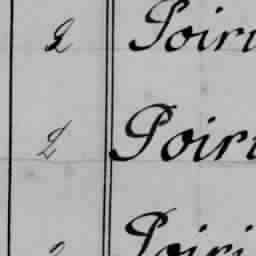 2 Poiri
2 Poiri
2 Poiri